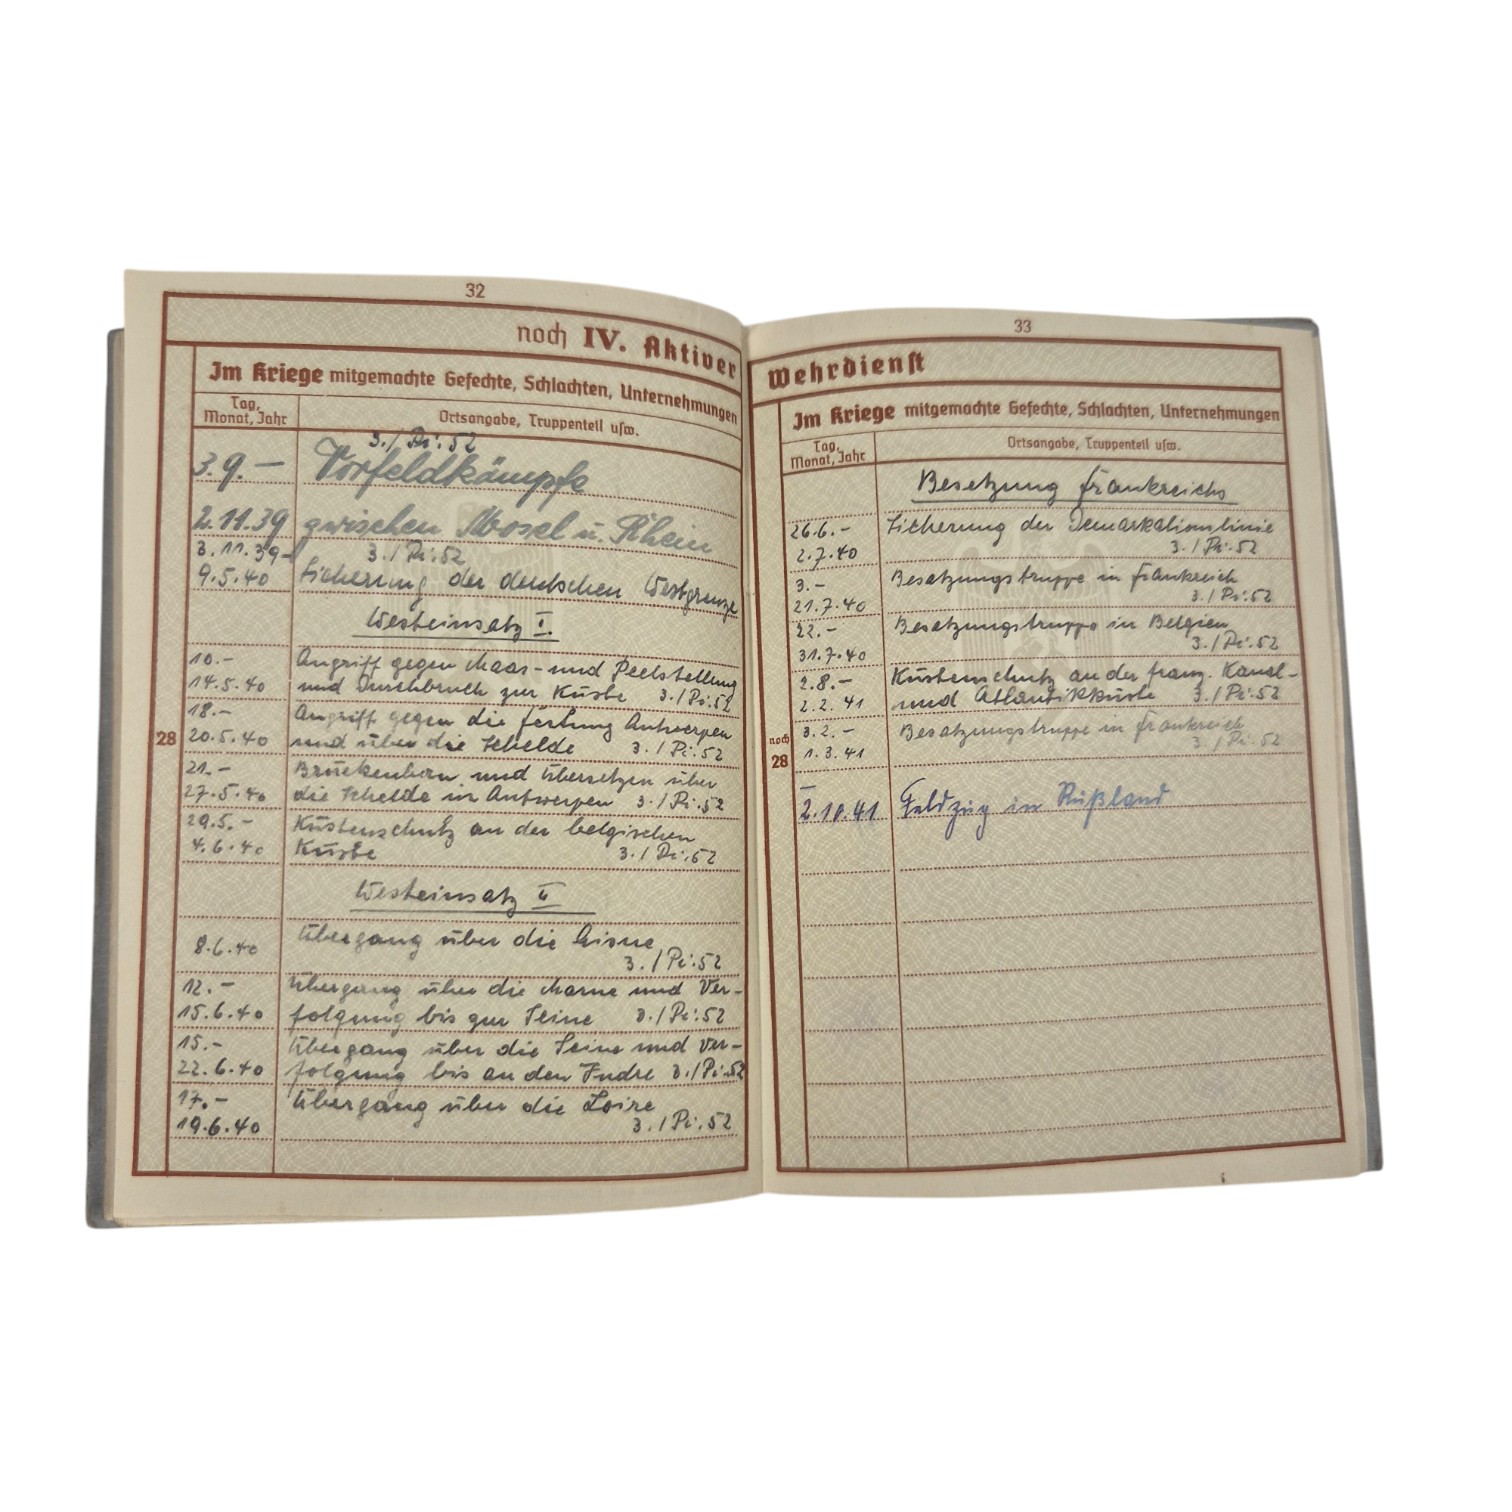 32
noch IV. Aktiver
Im Kriege mitgemachte Gefechte, Schlachten, Unternehmungen
Tag, Monat, Jahr
Ortsangabe, Truppenteil usw.
3./Pi. 52
3.9.– Vorfeldkämpfe
2.11.39 zwischen Mosel u. Rhein
3.11.39– 3./Pi. 52
9.5.40 Sicherung der deutschen Westgrenze
Westeinsatz I.
10.– Angriff gegen Maas- und Peelstellung
14.5.40 und Durchbruch zur Küste 3./Pi. 52
18.– Angriff gegen die Festung Antwerpen
28 20.5.40 und über die Schelde 3./Pi. 52
21.– Brückenbau und Übersetzen über
27.5.40 die Schelde in Antwerpen 3./Pi. 52
29.5.– Küstenschutz an der belgischen
4.6.40 Küste 3./Pi. 52
Westeinsatz II
Übergang über die Aisne
8.6.40 3./Pi. 52
12.– Übergang über die Marne und Ver-
15.6.40 folgung bis zur Seine 3./Pi. 52
15.– Übergang über die Seine und Ver-
22.6.40 folgung bis an den Indre 3./Pi. 52
17.– Übergang über die Loire
19.6.40 3./Pi. 52
33
Wehrdienst
Im Kriege mitgemachte Gefechte, Schlachten, Unternehmungen
Tag, Monat, Jahr
Ortsangabe, Truppenteil usw.
Besetzung Frankreichs
26.6.– Sicherung der Demarkationslinie
2.7.40 3./Pi. 52
3.– Besatzungstruppe in Frankreich
21.7.40 3./Pi. 52
22.– Besatzungstruppe in Belgien
31.7.40 3./Pi. 52
2.8.– Küstenschutz an der franz. Kanal-
2.2.41 und Atlantikküste 3./Pi. 52
3.2.– Besatzungstruppe in Frankreich
3./Pi. 52
noch 28 1.3.41
–
2.10.41 Feldzug in Rußland